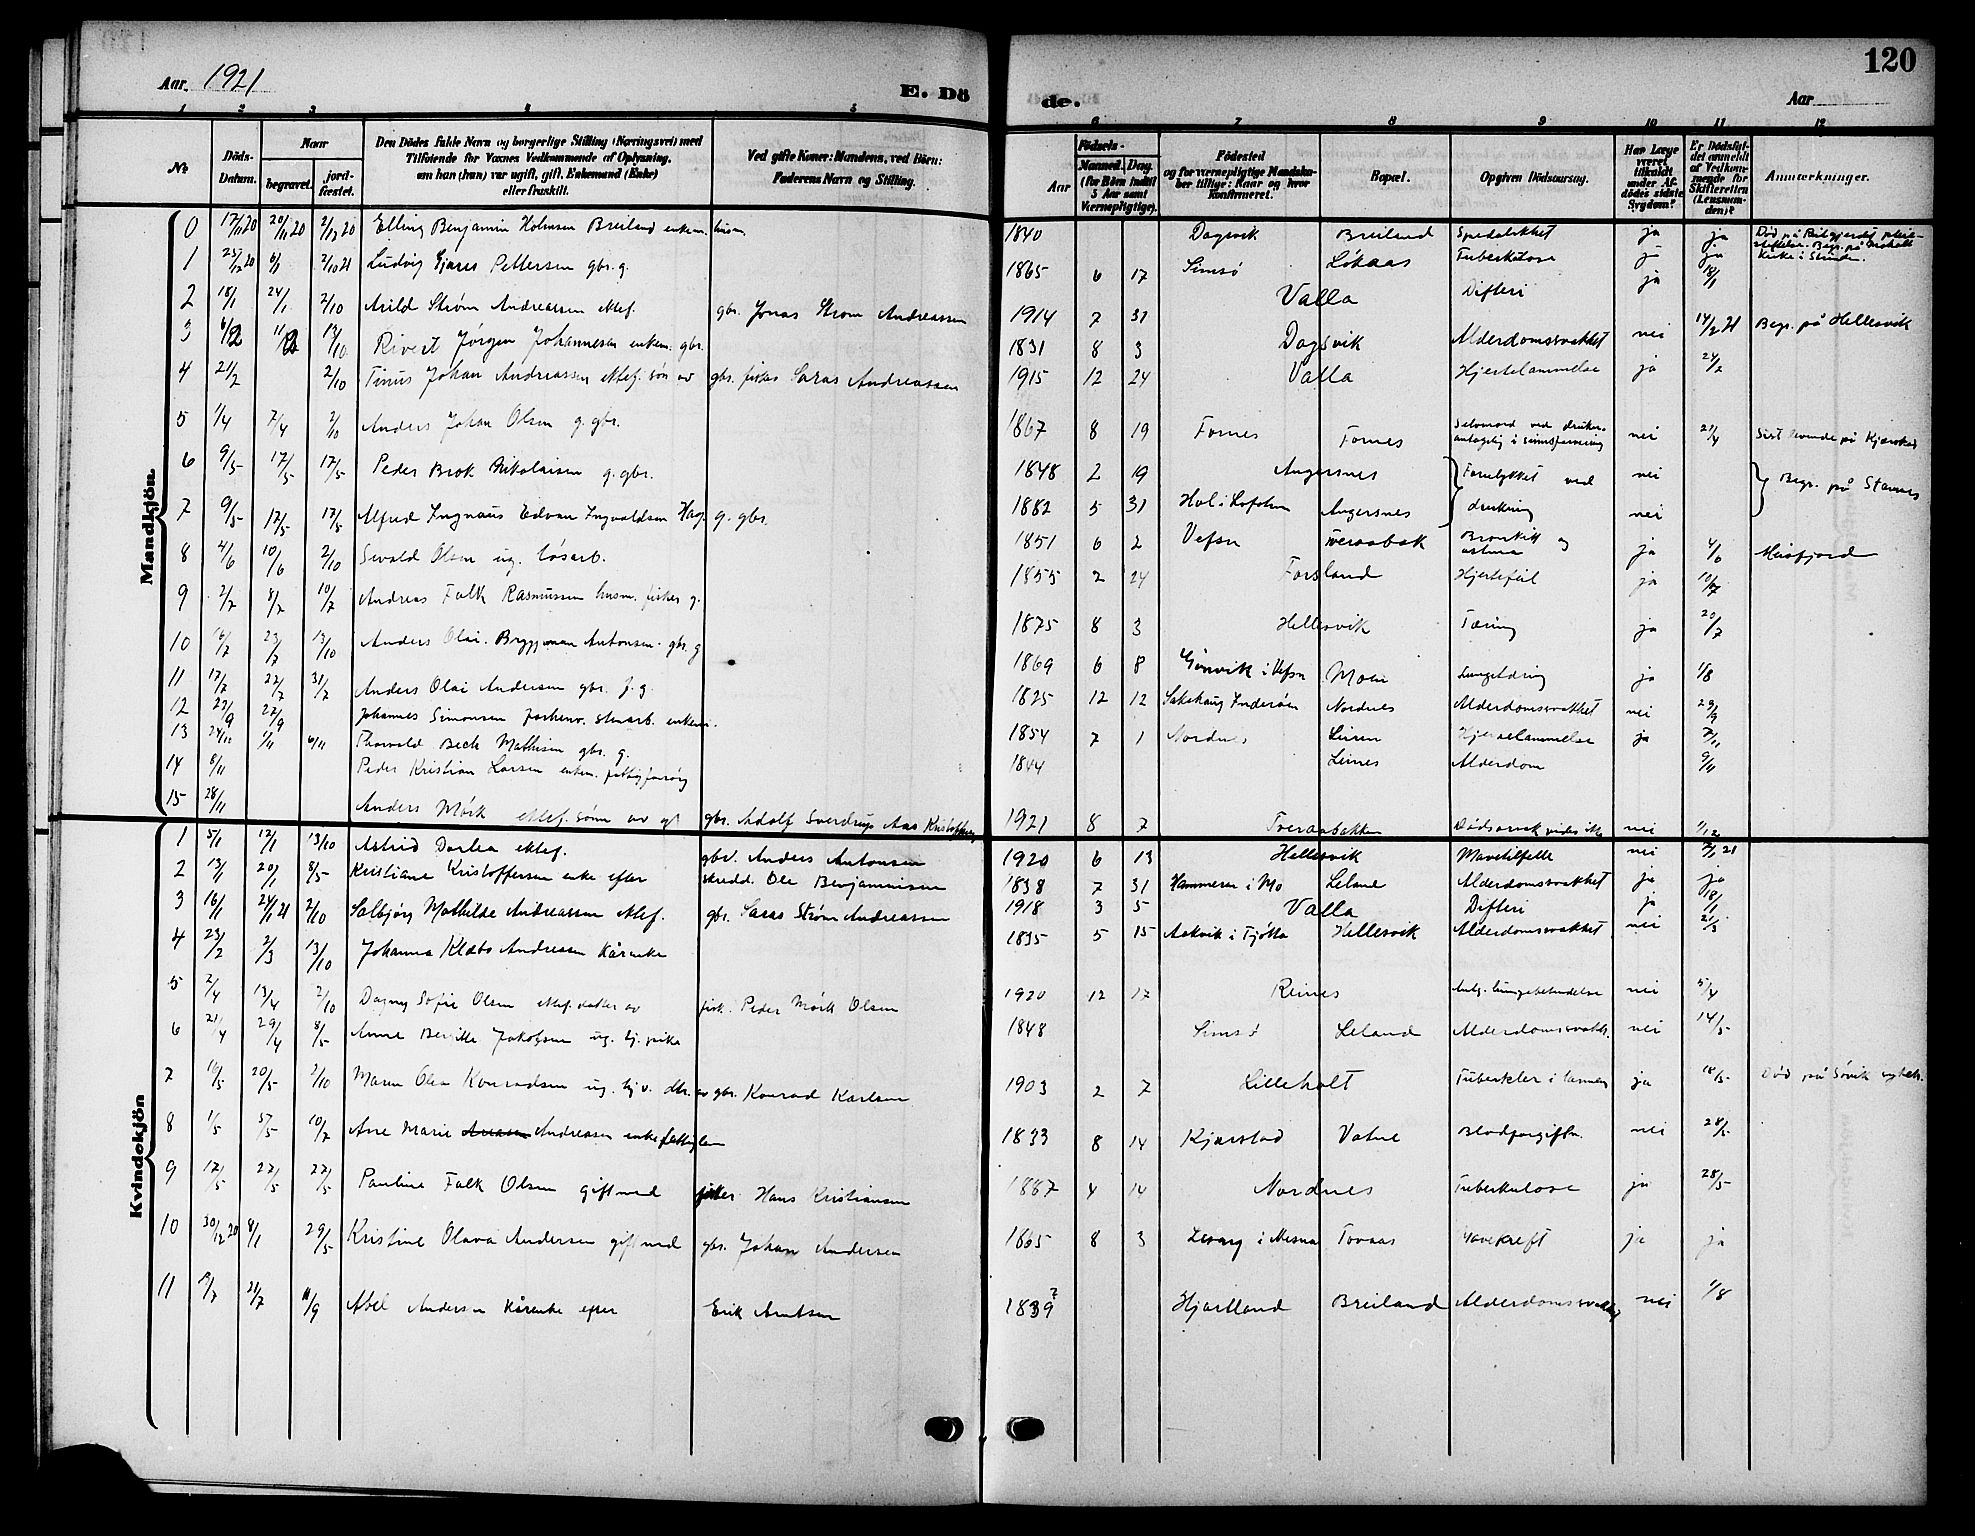 120
Aar. 1921
E. Dö
de.
Aar
1 2 3 4 5
6 7 8 9 10 11 12
No
Döds-Datum.
Naar
begravet.
jord-fæstet.
Den Dödes fulde Navn og borgerlige Stilling (Næringsvei) med
Tilföiende for Voxnes Vedkommende af Oplysning,
om han (hun) var ugift, gift, Enkemand (Enke)
eller fraskilt.
Ved gifte Koner: Mandens, ved Börn:
Faderens Navn og Stilling.
Födsels-
Aar
Maaned. Dag.
(for Börn indtil
5 Aar samt
Værnepligtige).
Födested
og for værnepligtige Mandskaber tillige: Naar og hvor
konfirmeret.
Bopæl.
Opgiven Dödsaarsag.
Har Læge
været
tilkaldt
under Afdödes sidste
Sygdom?
Er Dödsfaldet anmeldt
af Vedkommende for
Skifteretten
(Lensmanden)?
Anmærkninger.
Mandkjön.
0 17/11 20 20/11 20 2/12 20 Elling Benjamin Holmsen Breiland enkem. husm. 1840 Dagsvik Breiland Spedalskhet ja ja
1 25/12 20 6/1 2/10 21 Ludvig Pettersen gbr. g. 1865 6 17 Simsø Løkaas Tuberkulose ja ja
2 18/1 24/1 2/10 Arild Strøm Andreassen ektef. gbr. Jonas Strøm Andreassen 1914 7 31 Valla Difteri ja 18/1
3 6/2 11/2 13/10 Rivert Jørgen Johannesen enkem. gbr. 1831 8 3 Dagsvik Alderdomssvakhet nei 14/2 21 Begr. på Hellesvik
4 21/2 2/10 Tinus Johan Andreassen ektef. søn av gbr. fisker Saras Andreassen 1915 12 24 Valla Hjertelammelse ja 24/2
5 1/4 7/4 2/10 Anders Johan Olsen g. gbr. 1867 8 19 Fornes Fornes Selvmord ved drukn. antagelig i sinnsforvirring nei 21/4 Sist levende på
6 9/5 17/5 17/5 Peder Brok Nikolaisen g. gbr. 1848 2 19 Angersnes Forulykket ved nei Begr. på Stamnes
7 9/5 17/5 17/5 Alfred Edvar Ingvaldsen Hag. g. gbr. 1882 5 31 Hol i Lofoten Angersnes drukning nei
8 4/6 10/6 2/10 Sevald Olsen ug. løsarb. 1851 6 2 Vefsn Tveraabak Bronkitt og astma ja 4/6
9 2/7 8/7 10/7 Andreas Falk Rasmussen husm. fisker g. 1855 2 24 Forsland Hjertefeil ja 10/7
10 16/7 23/7 13/10 Anders Olai Bryggman Antonsen gbr. g 1875 8 3 Hellesvik Tæring ja 20/7
11 17/7 22/7 31/7 Anders Olai Andersen gbr. f. g. 1869 6 8 i Vefsn Moen Lungetæring ja 1/8
12 22/9 27/9 Johannes Simonsen stenarb. enkem. 1825 12 12 Sakshaug Inderøen Nordnes Alderdomssvakhet nei 29/9
13 24/10 1/11 6/11 Thorvald Bech Mathisen gbr. g. 1854 7 1 Nordnes Hjertelammelse ja 7/11
14 8/11 Peder Kristian Larsen enkem. fattigforsørg 1844 Leines Alderdom 9/11
15 28/11 Anders Mørk ektef. sønn av gbr. Adolf Sverdrup Aas Kristoffersen 1921 8 7 Tveraabakken Dødsaarsak vides ikke nei 1/12
Kvindekjön
1 5/1 12/1 13/10 Astrid Dorlea ektef. gbr. Anders Antonsen 1920 6 13 Hellesvik Mavetilfelle nei 7/1 21
2 13/1 20/1 8/5 Kristiane Kristoffersen enke efter skredd. Ole Benjaminsen 1838 7 31 Hammeren i Mo Leland Alderdomssvakhet ja ja
3 16/1 24/1 21 2/10 Solbjørg Mathilde Andreassen ektef. gbr. Saras Strøm Andreassen 1918 3 5 Valla Difteri ja 18/1
4 23/2 2/3 13/10 Johanna Klæbo Andreassen kårenke 1835 5 15 Aakvik i Tjøtta Hellesvik Alderdomssvakhet nei 21/3
5 2/4 13/4 2/10 Dagny Sofie Olsen ektef. datter av fisk. Peder Mørk Olsen 1920 12 17 Reines Antg. lungebetendelse nei 5/4
6 21/4 29/4 8/5 Anne Beritte Jakobsen ug. tj. pike 1848 Simsø Leland Alderdomssvakh. nei 14/5
7 16/5 20/5 2/10 Maren Olea Konradsen ug. tj. dtr. av gbr. Konrad Karlsen 1903 2 7 Lilleholt Tuberkler i tarmen ja 18/5 Død på Søvik sykeh.
8 1/5 5/5 10/7 Ane Marie Andreassen enke fattiglem 1833 8 14 Kjærstad Vatne Blodforgiftn. nei 28/5
9 17/5 27/5 22/5 Pauline Falk Olsen gift med fisker Hans Kristiansen 1887 4 14 Nordnes Tuberkulose ja 28/5
10 30/12 20 8/1 29/5 Kristine Olava Andersen gift med gbr. Johan Andersen 1865 8 3 Levang i Nesna Tovaas Mavekreft ja ja
11 19/7 21/7 11/9 Abel Andersen kårenke efter Erik Arntsen 1839 ? Hjartland Breiland Alderdomssvakhet nei 1/8